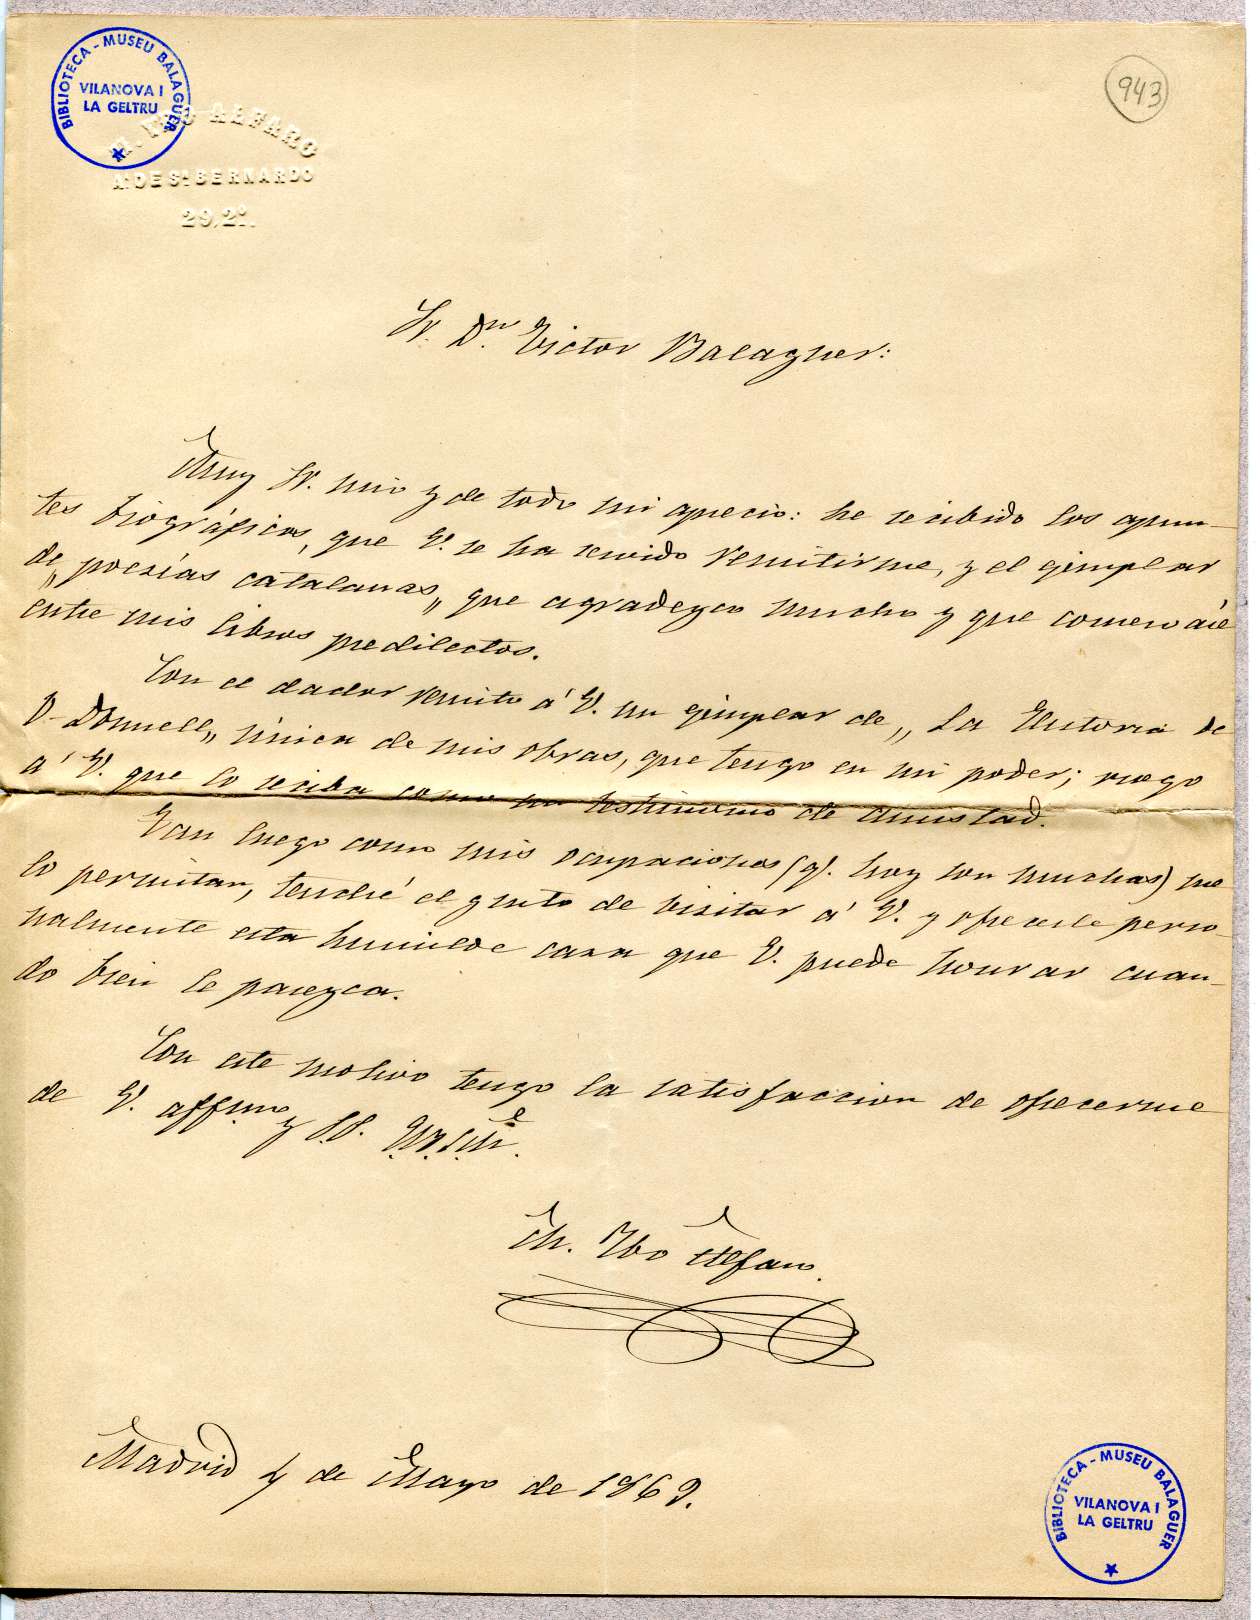 BIBLIOTECA - MUSEU BALAGUER
VILANOVA I
LA GELTRU
943
M. IBO ALFARO
Aª DE Sⁿ BERNARDO
29, 2º.
Sr. Dⁿ. Victor Balaguer:
Muy Sr. mio y de todo mi aprecio: he recibido los apun-
tes biográficos, que V. se ha servido remitirme, y el ejemplar
de „poesías catalanas„ que agradezco mucho y que conservaré
entre mis libros predilectos.
Con el dador remito á V. un ejemplar de „La Historia de
O-Donnell„ única de mis obras, que tengo en mi poder; ruego
á V. que lo reciba como un testimonio de amistad.
Tan luego como mis ocupaciones (q. hoy son muchas) me
lo permitan, tendré el gusto de visitar á V. y ofrecerle perso-
nalmente esta humilde casa que V. puede honrar cuan-
do bien le parezca.
Con este motivo tengo la satisfaccion de ofrecerme
de V. affmo y S.S. Q.B.S.M.
M. Ibo Alfaro.
Madrid 4 de Mayo de 1869.
BIBLIOTECA - MUSEU BALAGUER
VILANOVA I
LA GELTRU